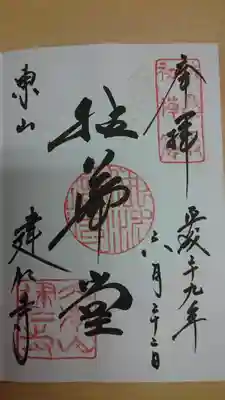 奉拝
平成二十九年
六月二十二日
拈華堂
東山
建仁寺